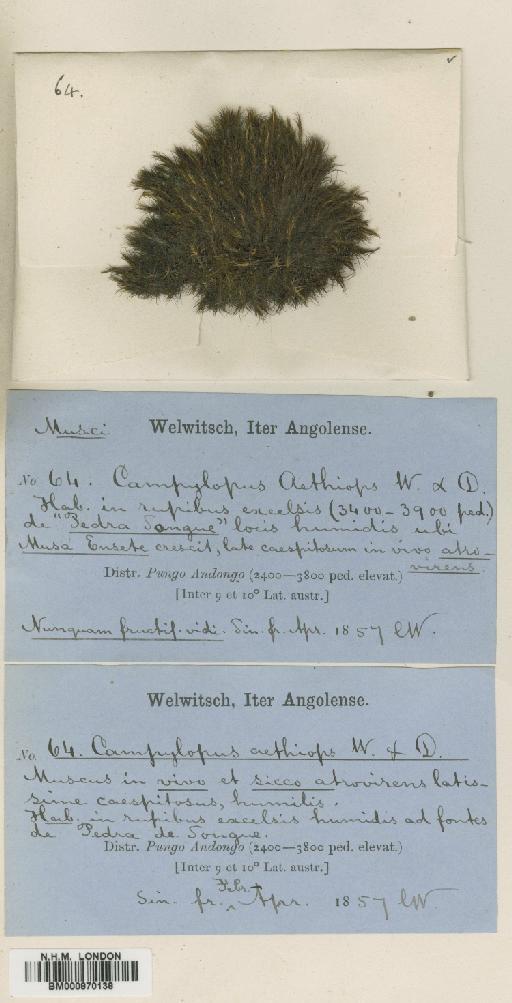 64.
Musci
Welwitsch, Iter Angolense.
No. 64. Campylopus Aethiops W. & D.
Hab. in rupibus excelsis (3400-3900 ped.)
de "Pedra Songue" locis humidis ubi
Musa Ensete crescit, late caespitosum in vivo atro-
virens.
Distr. Pungo Andongo (2400—3800 ped. elevat.)
[Inter 9 et 10° Lat. austr.]
Nunquam fructif. vidi. Sin. fr. Apr. 1857 CW.
Welwitsch, Iter Angolense.
No. 64. Campylopus aethiops W. & D.
Muscus in vivo et sicco atrovirens latis-
sime caespitosus, humilis.
Hab. in rupibus excelsis humidis ad fontes
de Pedra de Songue.
Distr. Pungo Andongo (2400—3800 ped. elevat.)
[Inter 9 et 10° Lat. austr.]
Febr. +
Sin. fr. Apr. 1857 CW.
N.H.M. LONDON
BM000870138